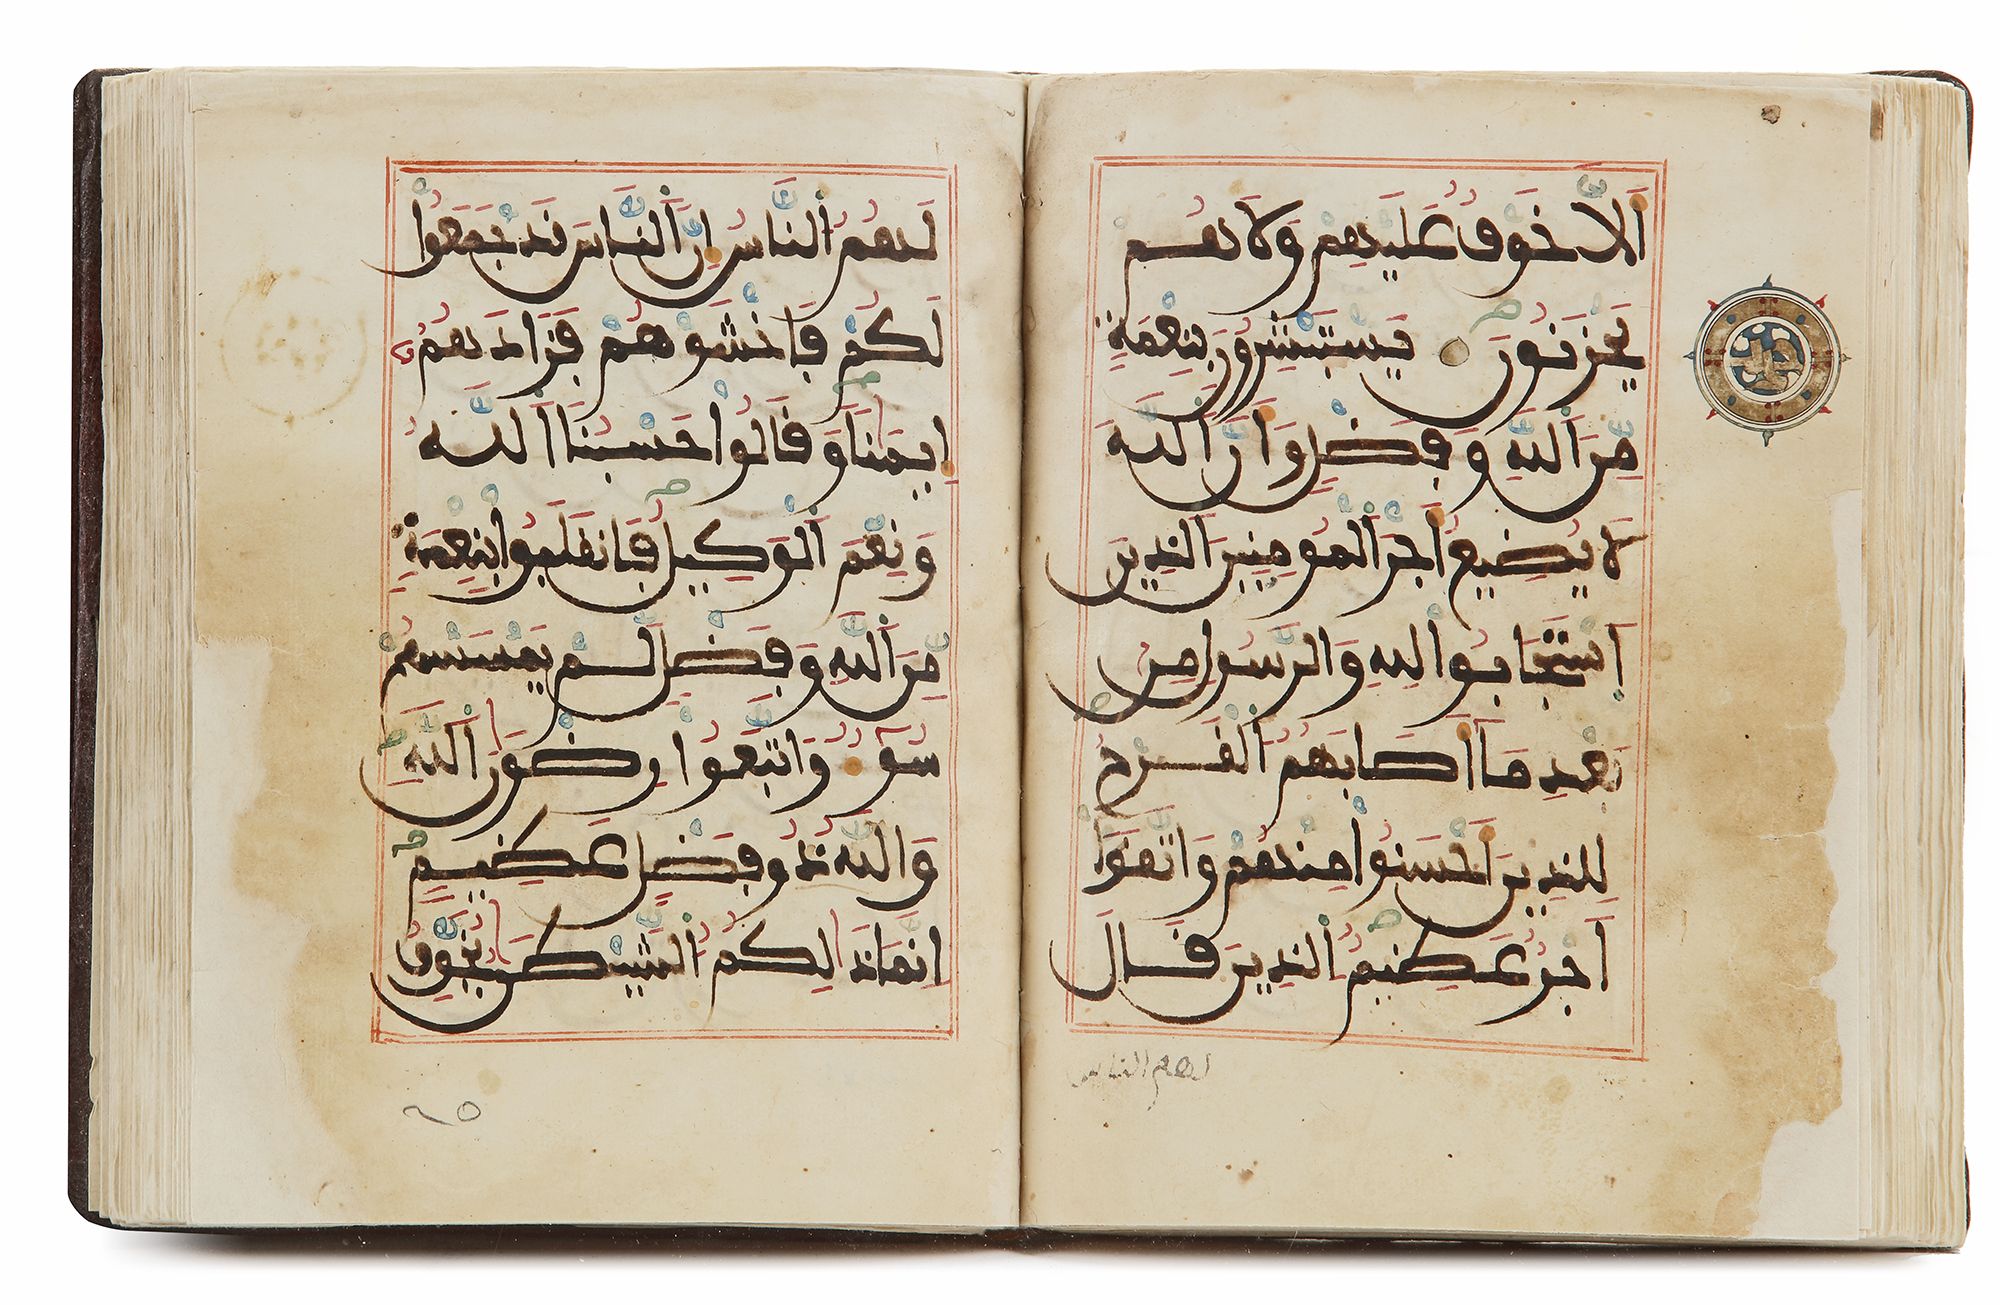 أَلَّا خَوْفٌ عَلَيْهِمْ وَلَا هُمْ
يَحْزَنُونَ يَسْتَبْشِرُونَ بِنِعْمَةٍ
مِّنَ اَللَّهِ وَفَضْلٍ وَأَنَّ اَللَّهَ
لَا يُضِيعُ أَجْرَ اَلْمُومِنِينَ اَلذِينَ
اَسْتَجَابُوا لِلهِ وَالرَّسُولِ مِنْ
بَعْدِ مَا أَصَابَهُمُ اُلْقَرْحُ
لِلذِينَ أَحْسَنُوا مِنْهُمْ وَاتَّقَوْا
أَجْرٌ عَظِيمٌ اَلذِينَ قَالَ
لهم الناس
لَهُمُ اُلنَّاسُ إِنَّ اَلنَّاسَ قَدْ جَمَعُوا
لَكُمْ فَاخْشَوْهُمْ فَزَادَهُمُ
إِيمَنًا وَقَالُوا حَسْبُنَا اَللَّهُ
وَنِعْمَ اَلْوَكِيلُ فَانْقَلَبُوا بِنِعْمَةٍ
مِّنَ اَللَّهِ وَفَضْلٍ لَّمْ يَمْسَسْهُمْ
سُوءٌ وَاتَّبَعُوا رِضْوَنَ اَللَّهِ
وَاللَّهُ ذُو فَضْلٍ عَظِيمٍ
إِنَّمَا ذَلِكُمُ اُلشَّيْطَنُ يُخَوِّفُ